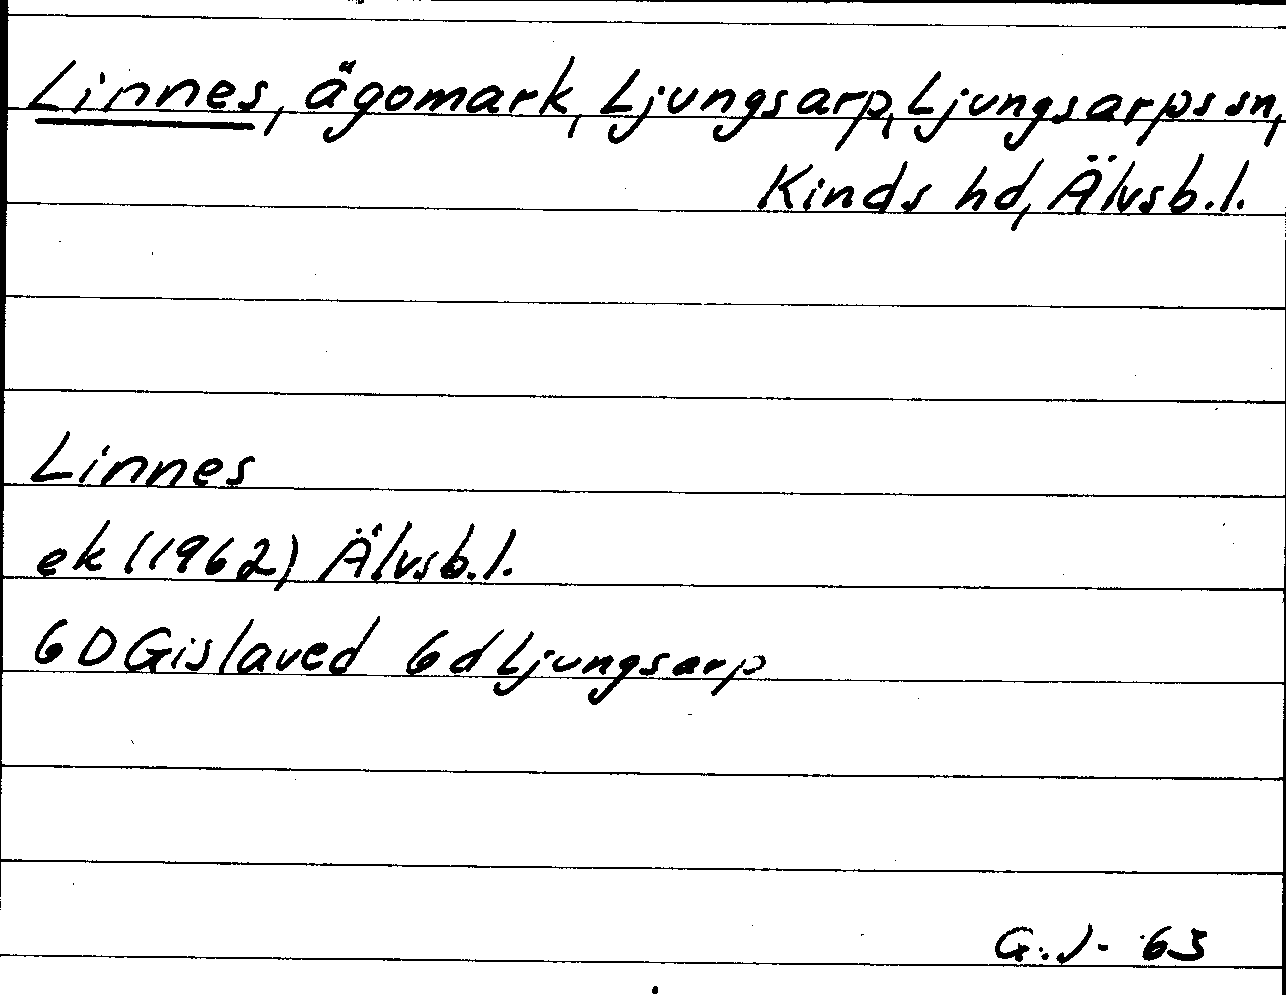 Linnes, ägomark, Ljungsarp, Ljungsarps sn,
Kinds hd, Älvsb.l.
Linnes
ek (1962) Älvsb.l.
6D Gislaved 6d Ljungsarp
G.J- 63